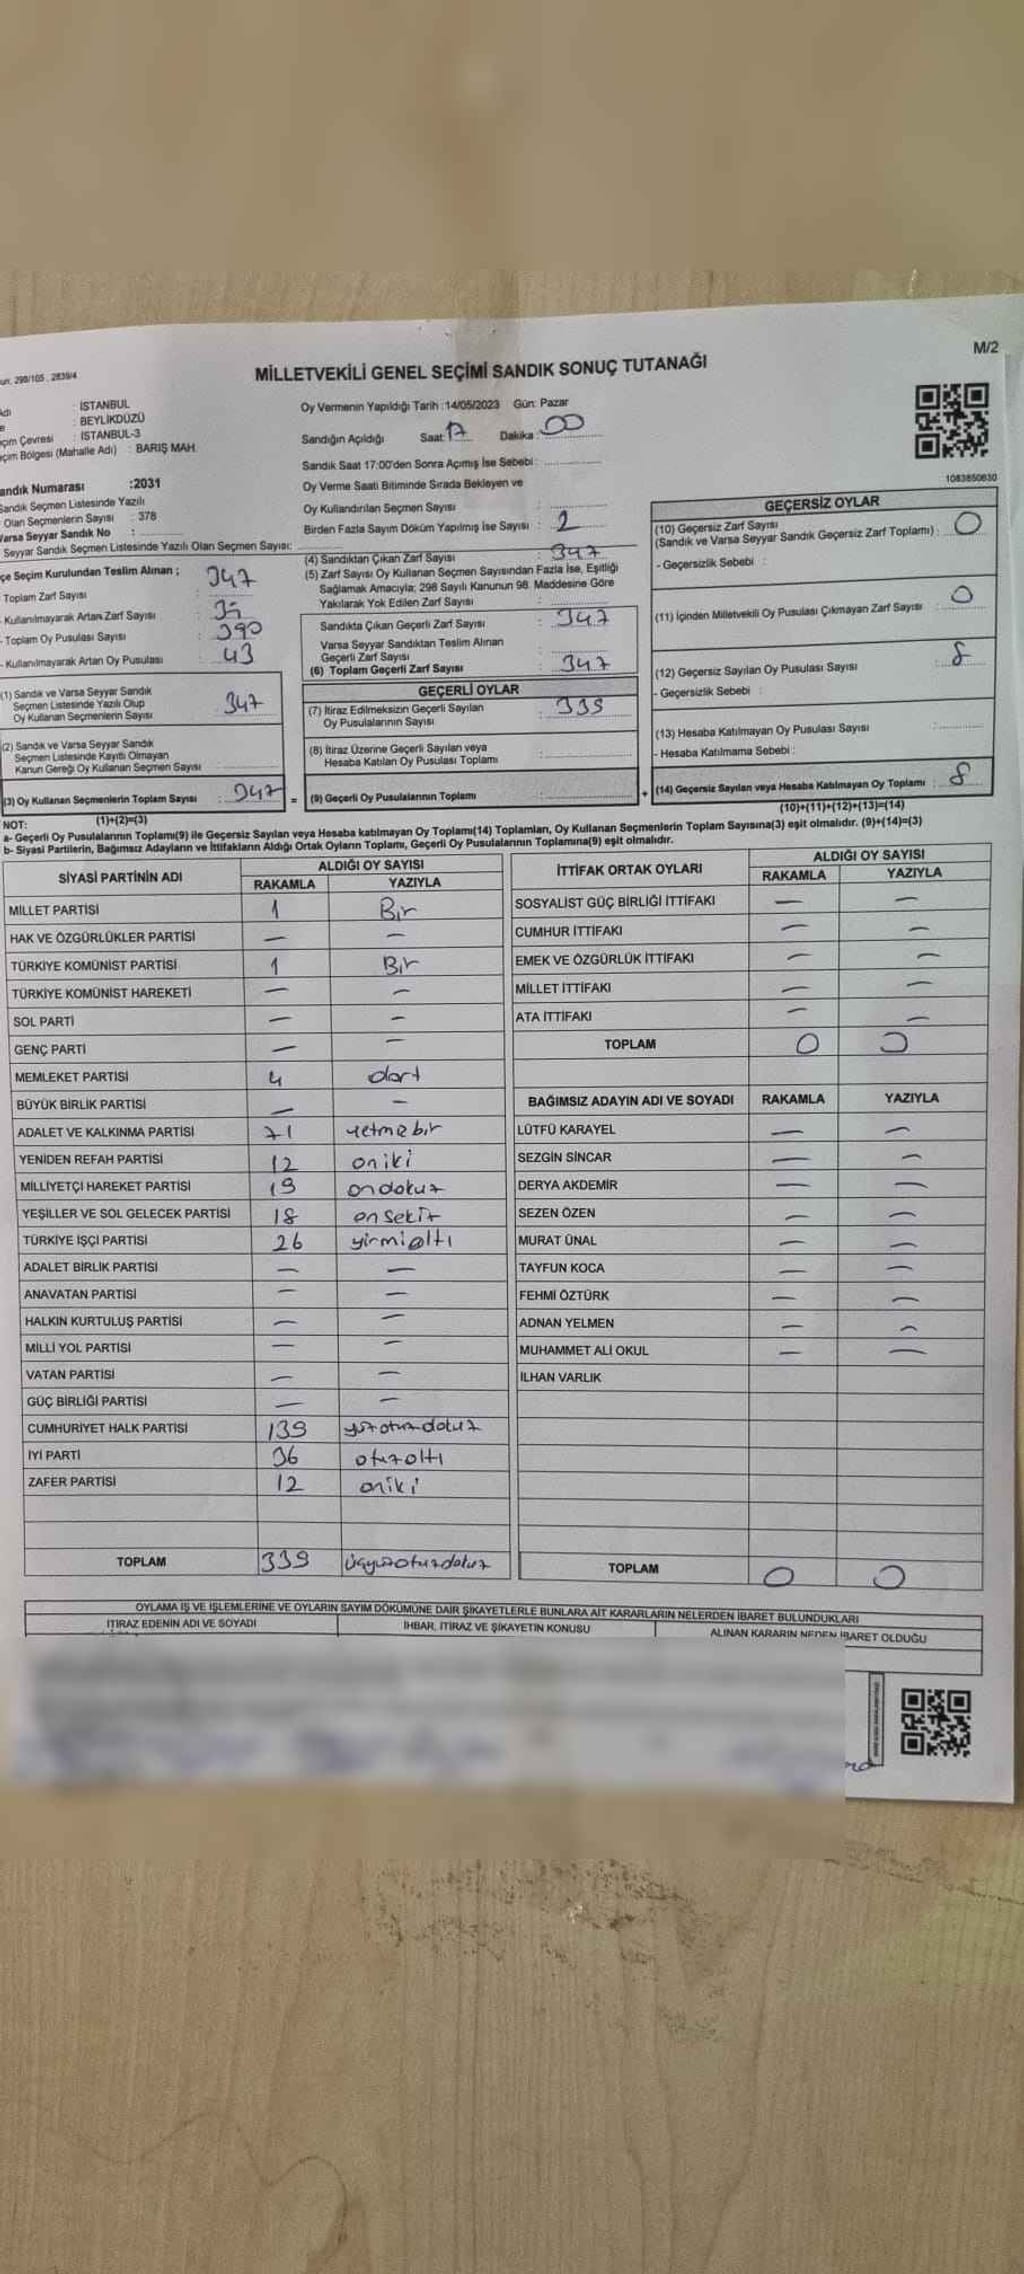 M/2
MİLLETVEKİLİ GENEL SEÇİMİ SANDIK SONUÇ TUTANAĞI
298/105 , 2839/4
: İSTANBUL
: BEYLİKDÜZÜ
Çevresi : İSTANBUL-3
Bölgesi (Mahalle Adı) : BARIŞ MAH.
Numarası :2031
Sandık Seçmen Listesinde Yazılı
Olan Seçmenlerin Sayısı : 378
Varsa Seyyar Sandık No :
Seyyar Sandık Seçmen Listesinde Yazılı Olan Seçmen Sayısı:
Seçim Kurulundan Teslim Alınan ;
Toplam Zarf Sayısı : 347
- Kullanılmayarak Artan Zarf Sayısı :
- Toplam Oy Pusulası Sayısı : 390
- Kullanılmayarak Artan Oy Pusulası : 43
(1) Sandık ve Varsa Seyyar Sandık
Seçmen Listesinde Yazılı Olup
Oy Kullanan Seçmenlerin Sayısı : 347
(2) Sandık ve Varsa Seyyar Sandık
Seçmen Listesinde Kayıtlı Olmayan
Kanun Gereği Oy Kullanan Seçmen Sayısı
(3) Oy Kullanan Seçmenlerin Toplam Sayısı : 347 =
(1)+(2)=(3)
Oy Vermenin Yapıldığı Tarih :14/05/2023 Gün: Pazar
Sandığın Açıldığı Saat: 17 Dakika : 00
Sandık Saat 17:00'den Sonra Açımış İse Sebebi :
Oy Verme Saati Bitiminde Sırada Bekleyen ve
Oy Kullandırılan Seçmen Sayısı :
Birden Fazla Sayım Döküm Yapılmış İse Sayısı : 2
(4) Sandıktan Çıkan Zarf Sayısı : 347
(5) Zarf Sayısı Oy Kullanan Seçmen Sayısından Fazla İse, Eşitliği
Sağlamak Amacıyla; 298 Sayılı Kanunun 98. Maddesine Göre
Yakılarak Yok Edilen Zarf Sayısı :
Sandıkta Çıkan Geçerli Zarf Sayısı : 347
Varsa Seyyar Sandıktan Teslim Alınan
Geçerli Zarf Sayısı :
(6) Toplam Geçerli Zarf Sayısı : 347
GEÇERLİ OYLAR
(7) İtiraz Edilmeksizin Geçerli Sayılan
Oy Pusulalarının Sayısı : 339
(8) İtiraz Üzerine Geçerli Sayılan veya
Hesaba Katılan Oy Pusulası Toplamı :
(9) Geçerli Oy Pusulalarının Toplamı : +
1083850630
GEÇERSİZ OYLAR
(10) Geçersiz Zarf Sayısı
(Sandık ve Varsa Seyyar Sandık Geçersiz Zarf Toplamı) : 0
- Geçersizlik Sebebi :
(11) İçinden Milletvekili Oy Pusulası Çıkmayan Zarf Sayısı : 0
(12) Geçersiz Sayılan Oy Pusulası Sayısı : 8
- Geçersizlik Sebebi :
(13) Hesaba Katılmayan Oy Pusulası Sayısı :
- Hesaba Katılmama Sebebi :
(14) Geçersiz Sayılan veya Hesaba Katılmayan Oy Toplamı : 8
(10)+(11)+(12)+(13)=(14)
NOT:
a- Geçerli Oy Pusulalarının Toplamı(9) ile Geçersiz Sayılan veya Hesaba katılmayan Oy Toplamı(14) Toplamları, Oy Kullanan Seçmenlerin Toplam Sayısına(3) eşit olmalıdır. (9)+(14)=(3)
b- Siyasi Partilerin, Bağımsız Adayların ve İttifakların Aldığı Ortak Oyların Toplamı, Geçerli Oy Pusulalarının Toplamına(9) eşit olmalıdır.
SİYASİ PARTİNİN ADI ALDIĞI OY SAYISI
RAKAMLA YAZIYLA
MİLLET PARTİSİ 1 Bir
HAK VE ÖZGÜRLÜKLER PARTİSİ — —
TÜRKİYE KOMÜNİST PARTİSİ 1 Bir
TÜRKİYE KOMÜNİST HAREKETİ — —
SOL PARTİ — —
GENÇ PARTİ — —
MEMLEKET PARTİSİ 4 dört
BÜYÜK BİRLİK PARTİSİ — —
ADALET VE KALKINMA PARTİSİ 71 yetmiş bir
YENİDEN REFAH PARTİSİ 12 oniki
MİLLİYETÇİ HAREKET PARTİSİ 19 ondokuz
YEŞİLLER VE SOL GELECEK PARTİSİ 18 onsekiz
TÜRKİYE İŞÇİ PARTİSİ 26 yirmialtı
ADALET BİRLİK PARTİSİ — —
ANAVATAN PARTİSİ — —
HALKIN KURTULUŞ PARTİSİ — —
MİLLİ YOL PARTİSİ — —
VATAN PARTİSİ — —
GÜÇ BİRLİĞİ PARTİSİ — —
CUMHURİYET HALK PARTİSİ 139 yüzotuzdokuz
İYİ PARTİ 36 otuzaltı
ZAFER PARTİSİ 12 oniki
TOPLAM 339 üçyüzotuzdokuz
İTTİFAK ORTAK OYLARI ALDIĞI OY SAYISI
RAKAMLA YAZIYLA
SOSYALİST GÜÇ BİRLİĞİ İTTİFAKI — —
CUMHUR İTTİFAKI — —
EMEK VE ÖZGÜRLÜK İTTİFAKI — —
MİLLET İTTİFAKI — —
ATA İTTİFAKI — —
TOPLAM 0 0
BAĞIMSIZ ADAYIN ADI VE SOYADI RAKAMLA YAZIYLA
LÜTFÜ KARAYEL — —
SEZGİN SİNCAR — —
DERYA AKDEMİR — —
SEZEN ÖZEN — —
MURAT ÜNAL — —
TAYFUN KOCA — —
FEHMİ ÖZTÜRK — —
ADNAN YELMEN — —
MUHAMMET ALİ OKUL — —
İLHAN VARLIK
TOPLAM 0 0
OYLAMA İŞ VE İŞLEMLERİNE VE OYLARIN SAYIM DÖKÜMÜNE DAİR ŞİKAYETLERLE BUNLARA AİT KARARLARIN NELERDEN İBARET BULUNDUKLARI
İTİRAZ EDENİN ADI VE SOYADI İHBAR, İTİRAZ VE ŞİKAYETİN KONUSU ALINAN KARARIN NEDEN İBARET OLDUĞU